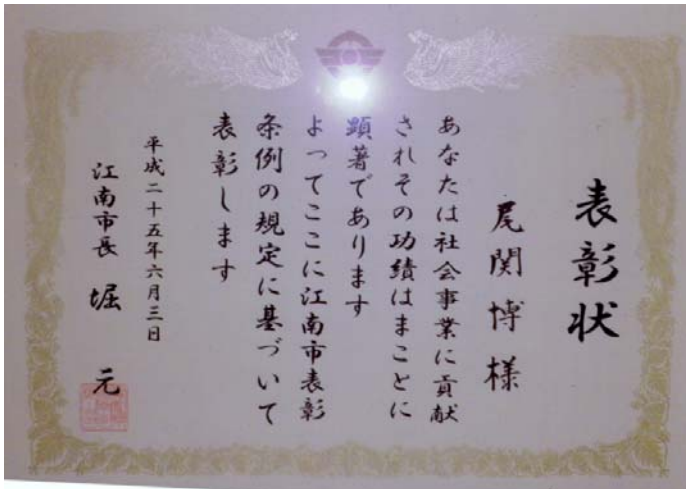 表彰状
尾関博様
あなたは社会事業に貢献
されその功績はまことに
顕著であります
よってここに江南市表彰
条例の規定に基づいて
表彰します
平成二十五年六月三日
江南市長 堀 元